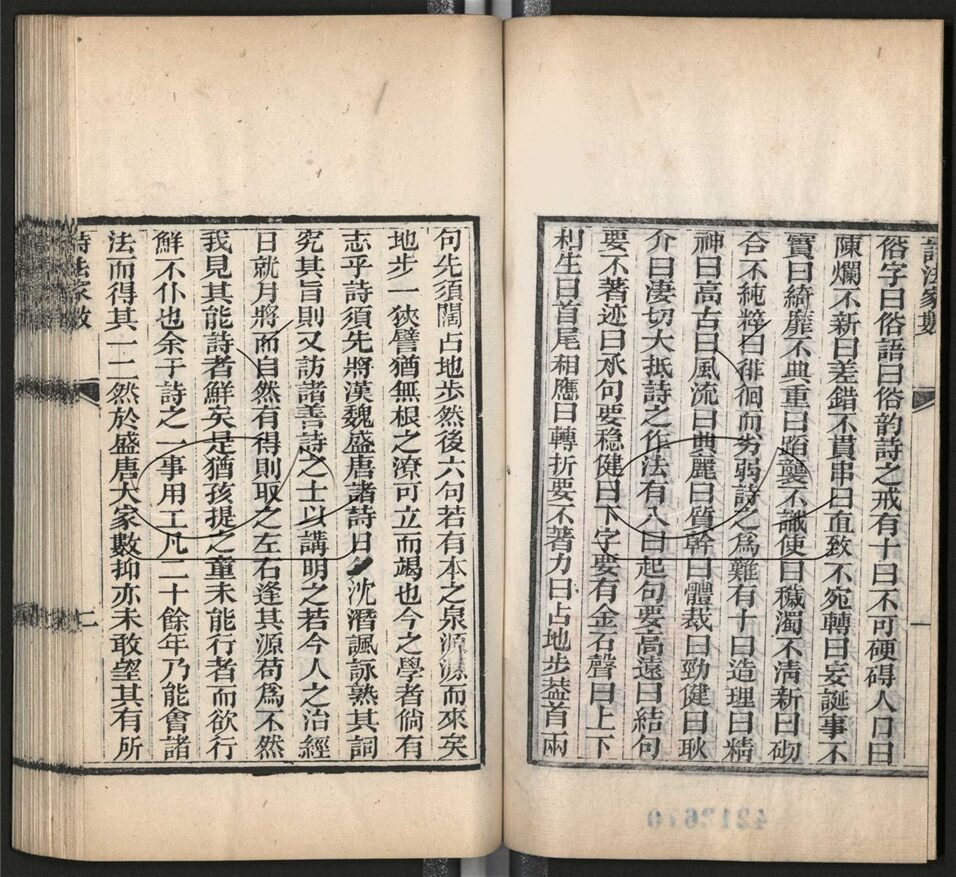 詩法家數
一
俗字曰俗語曰俗韵詩之戒有十曰不可硬碍人口曰
陳爛不新曰差錯不貫串曰直致不宛轉曰妄誕事不
實曰綺靡不典重曰蹈襲不識使曰穢濁不清新曰砌
合不純粹曰徘徊而劣弱詩之爲難有十曰造理曰精
神曰高古曰風流曰典麗曰質幹曰體裁曰勁健曰耿
介曰淒切大抵詩之作法有八曰起句要高遠曰結句
要不著迹曰承句要穩健曰下字要有金石聲曰上下
相生曰首尾相應曰轉折要不著力曰占地步葢首兩
句先須闊占地步然後六句若有本之泉源源而來矣
地步一狹譬猶無根之潦可立而竭也今之學者倘有
志乎詩須先將漢魏盛唐諸詩日夕沈潛諷詠熟其詞
究其旨則又訪諸善詩之士以講明之若今人之治經
日就月將而自然有得則取之左右逢其源苟爲不然
我見其能詩者鮮矣是猶孩提之童未能行者而欲行
鮮不仆也余于詩之一事用工凡二十餘年乃能會諸
法而得其一二然於盛唐大家數抑亦未敢望其有所
詩法家數
二
4212670